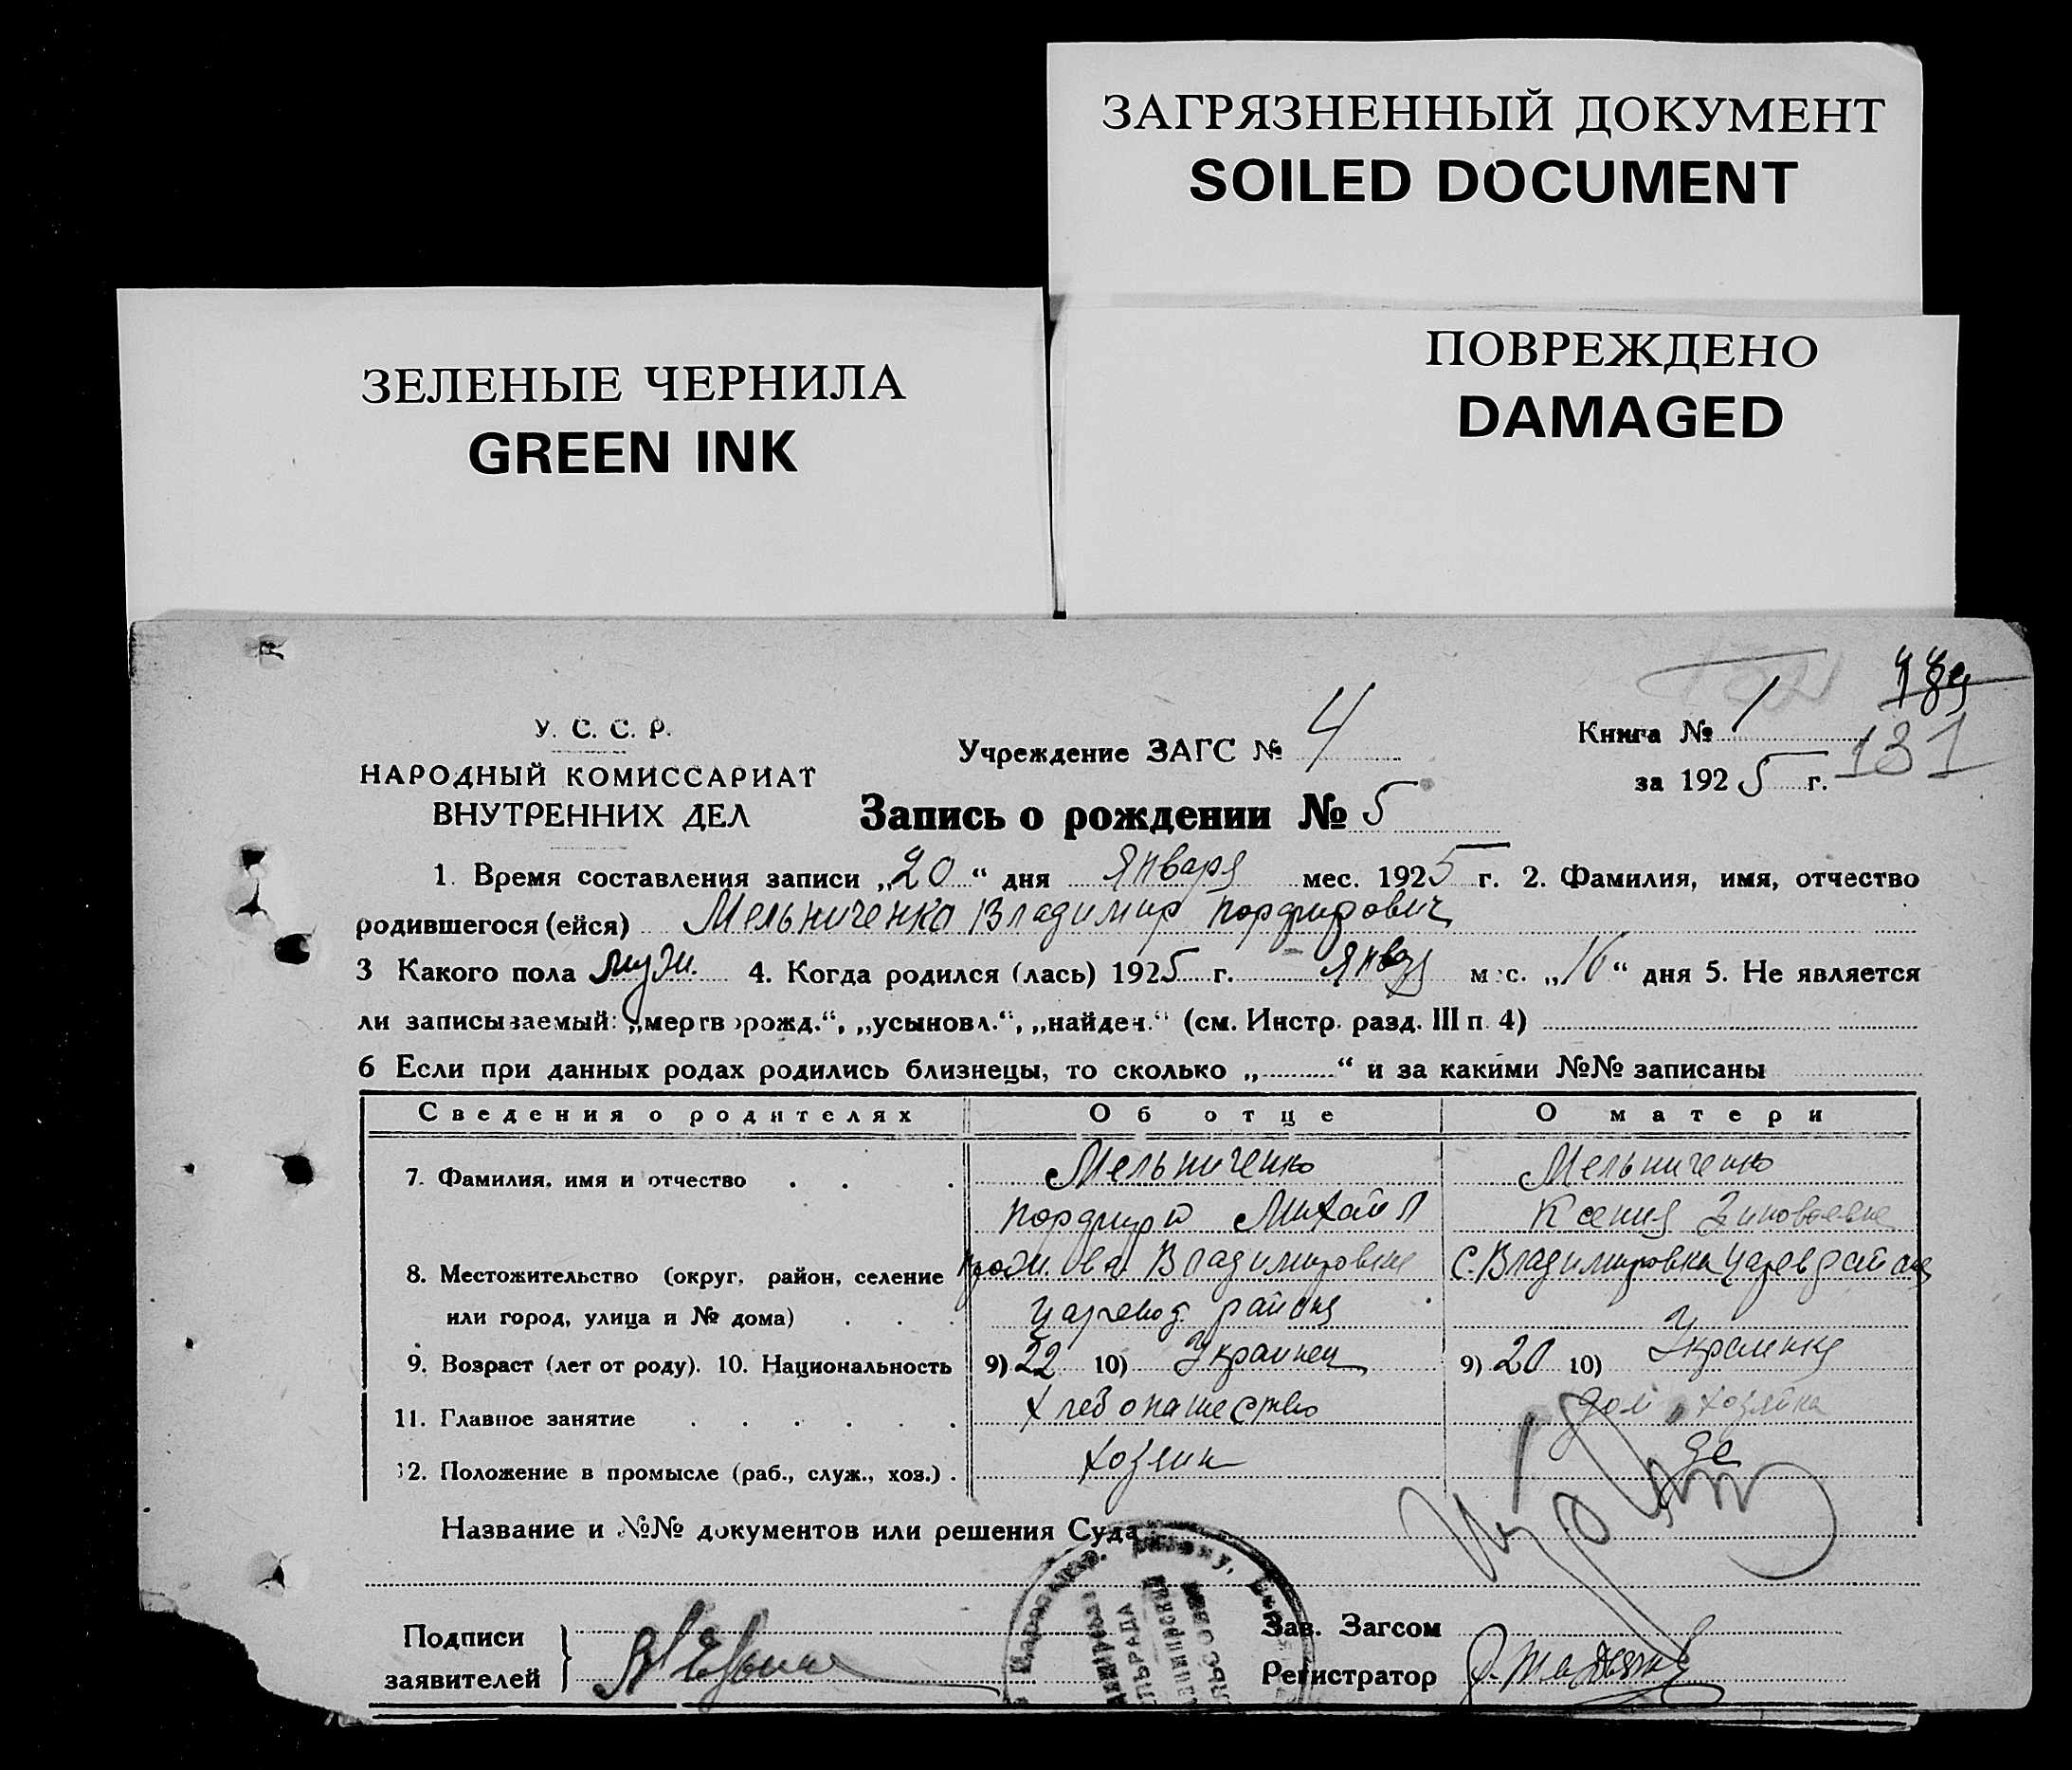 ЗАГРЯЗНЕННЫЙ ДОКУМЕНТ
SOILED DOCUMENT
ПОВРЕЖДЕНО
DAMAGED
ЗЕЛЕНЫЕ ЧЕРНИЛА
GREEN INK
У. С. С. Р.
НАРОДНЫЙ КОМИССАРИАТ
ВНУТРЕННИХ ДЕЛ
Учреждение ЗАГС № 4
Книга № 1
за 1925 г. 131
Запись о рождении № 5
1. Время составления записи „20“ дня Января мес. 1925 г. 2. Фамилия, имя, отчество
родившегося (ейся) Мельниченко Владимир Порфирович
3 Какого пола муж. 4. Когда родился (лась) 1925 г. Январ мес. „16“ дня 5. Не является
ли записываемый: „мертворожд.“, „усыновл.“, „найден.“ (см. Инстр. разд. III п. 4)
6 Если при данных родах родились близнецы, то сколько „ “ и за какими №№ записаны
Сведения о родителях Об отце О матери
7. Фамилия, имя и отчество Мельниченко Мельниченко
Порфирй Михайл Ксения Зиновьевна
8. Местожительство (округ, район, селение Владимировки С. Владимировка Царев района
или город, улица и № дома) Царевод. района
9. Возраст (лет от роду). 10. Национальность 9) 22 10) Украинец 9) 20 10) Украинка
11. Главное занятие Хлебопашество дом хозяйка
12. Положение в промысле (раб., служ., хоз.) Хозяин
Название и №№ документов или решения Суда
Подписи
заявителей
Зав. Загсом
Регистратор